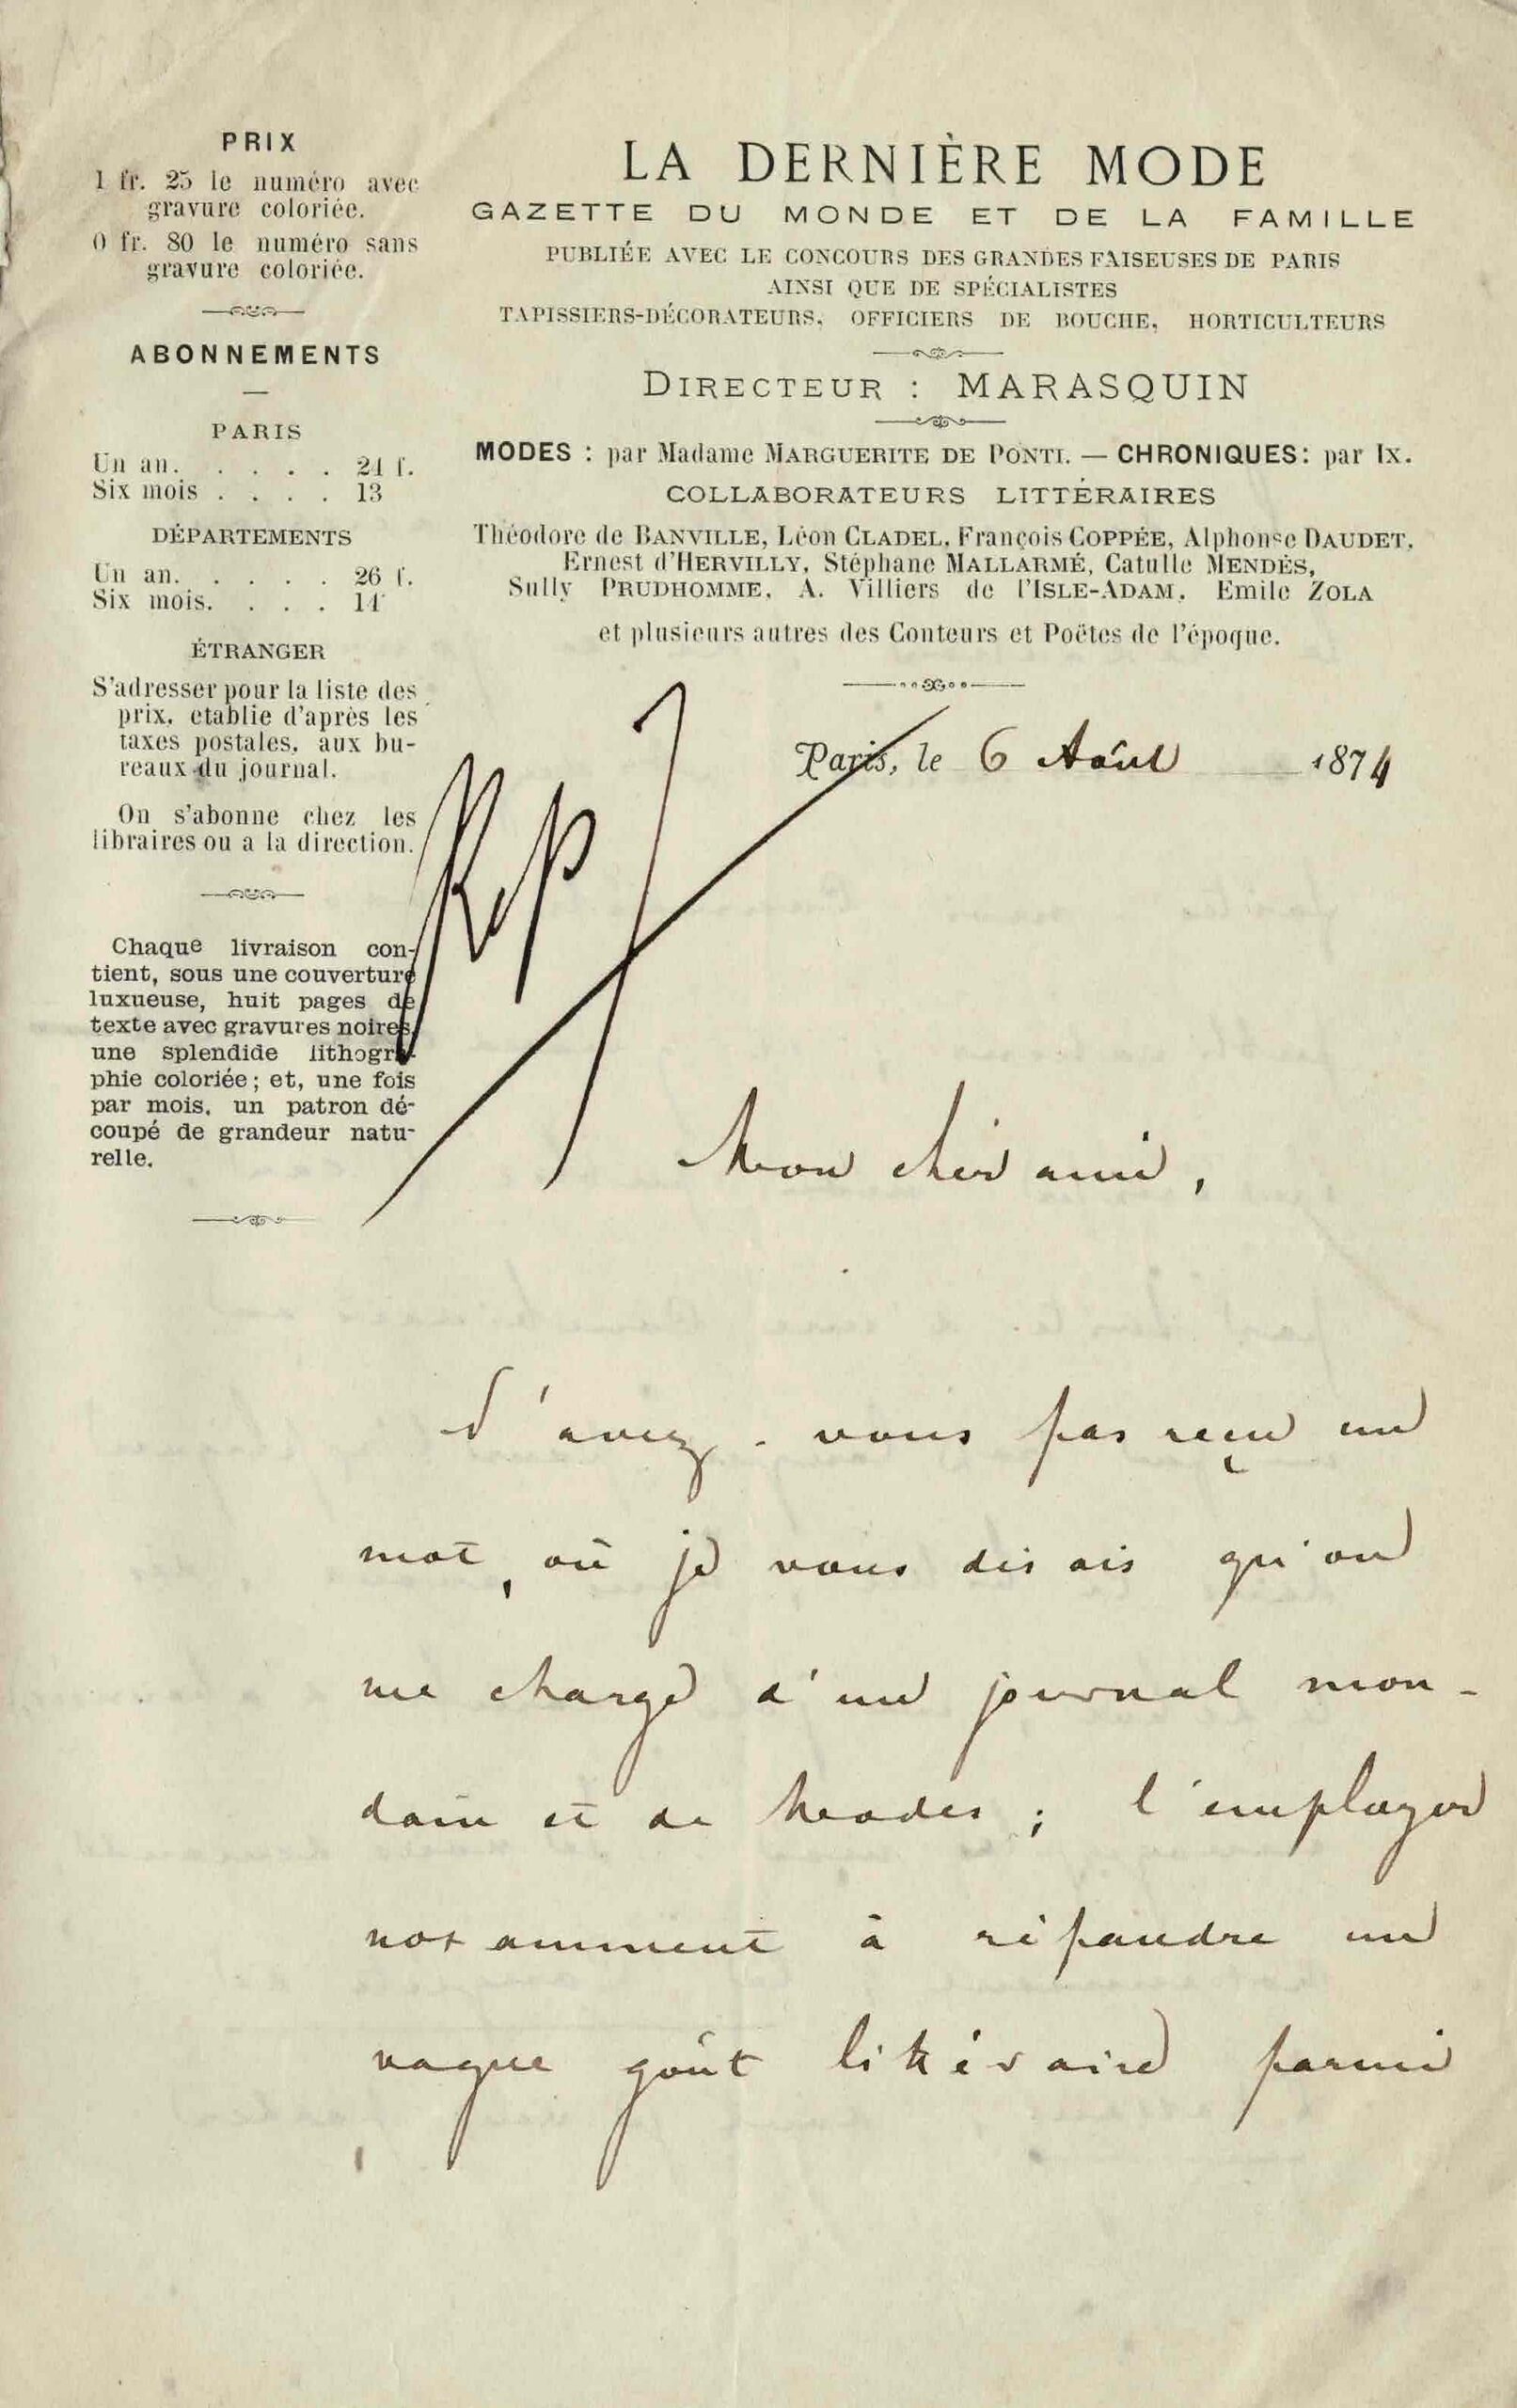 PRIX
1 fr. 25 le numéro avec
gravure coloriée.
0 fr. 80 le numéro sans
gravure coloriée.
ABONNEMENTS
PARIS
Un an. . . . . 24 f.
Six mois . . . . 13
DÉPARTEMENTS
Un an. . . . . 26 f.
Six mois. . . . 14
ÉTRANGER
S'adresser pour la liste des
prix, etablie d'après les
taxes postales, aux bu-
reaux du journal.
On s'abonne chez les
libraires ou a la direction.
Chaque livraison con-
tient, sous une couverture
luxueuse, huit pages de
texte avec gravures noires,
une splendide lithogra-
phie coloriée ; et, une fois
par mois, un patron dé-
coupé de grandeur natu-
relle.
LA DERNIÈRE MODE
GAZETTE DU MONDE ET DE LA FAMILLE
PUBLIÉE AVEC LE CONCOURS DES GRANDES FAISEUSES DE PARIS
AINSI QUE DE SPÉCIALISTES
TAPISSIERS-DÉCORATEURS, OFFICIERS DE BOUCHE, HORTICULTEURS
DIRECTEUR : MARASQUIN
MODES : par Madame MARGUERITE DE PONTI. — CHRONIQUES : par IX.
COLLABORATEURS LITTÉRAIRES
Théodore de BANVILLE, Léon CLADEL, François COPPÉE, Alphonse DAUDET,
Ernest d'HERVILLY, Stéphane MALLARMÉ, Catulle MENDÈS,
Sully PRUDHOMME, A. Villiers de l'ISLE-ADAM, Emile ZOLA
et plusieurs autres des Conteurs et Poëtes de l'époque.
Paris, le 6 Août 1874
Rep
Mon cher ami,
N'avez-vous pas reçu un
mot, où je vous disais qu'on
me charge d'un journal mon-
dain et de Modes ; l'employer
notamment à répandre un
vague goût littéraire parmi